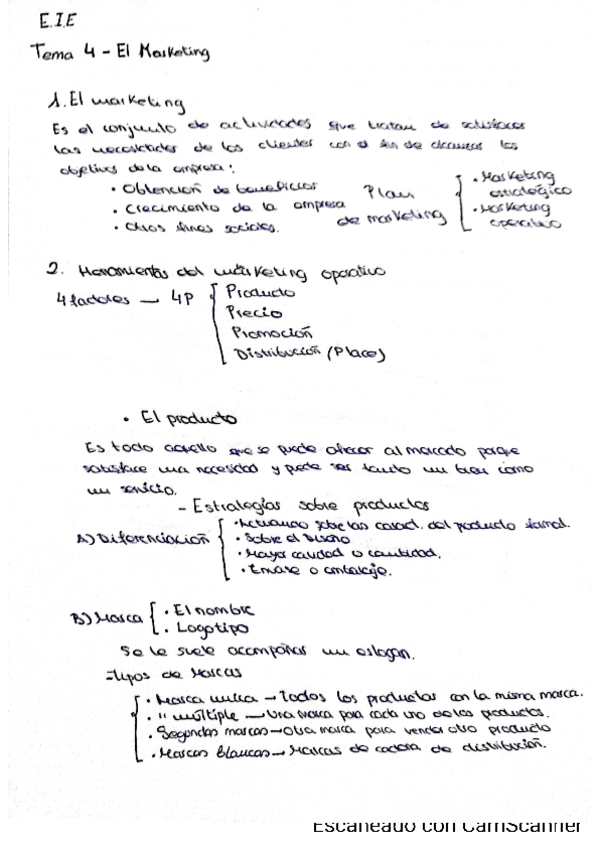 E.I.E
Tema 4 - El Marketing
1. El marketing
Es el conjunto de actividades que tratan de satisfacer
las necesidades de los clientes con el fin de alcanzar los
objetivos de la empresa:
· Obtención de beneficios
· Crecimiento de la empresa
· Otros fines sociales.
Plan
de marketing
· Marketing
estratégico
· Marketing
operativo
2. Herramientas del marketing operativo
4 factores — 4P
Producto
Precio
Promoción
Distribución (Place)
· El producto
Es todo aquello que se puede ofrecer al mercado porque
satisface una necesidad y puede ser tanto un bien como
un servicio.
- Estrategias sobre productos
A) Diferenciación
· Actuando sobre las caract. del producto formal.
· Sobre el diseño
· Mayor calidad o cantidad.
· Envase o embalaje.
B) Marca
· El nombre
· Logotipo
Se le suele acompañar un eslogan.
-Tipos de Marcas
· Marca única → Todos los productos con la misma marca.
· " múltiple → Una marca para cada uno de los productos.
· Segundas marcas → Otra marca para vender otro producto
· Marcas blancas → Marcas de cadena de distribución.
Escaneado con CamScanner